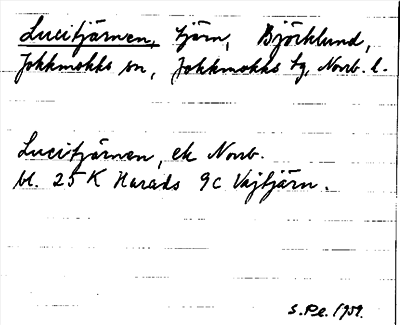 Lucitjärnen, tjärn, Björklund,
Jokkmokks sn, Jokkmokks tg, Norrb. l.
Lucitjärnen, ek Norrb.
bl. 25 K Harads 9c Vajtjärn.
S.Pe. 1959.